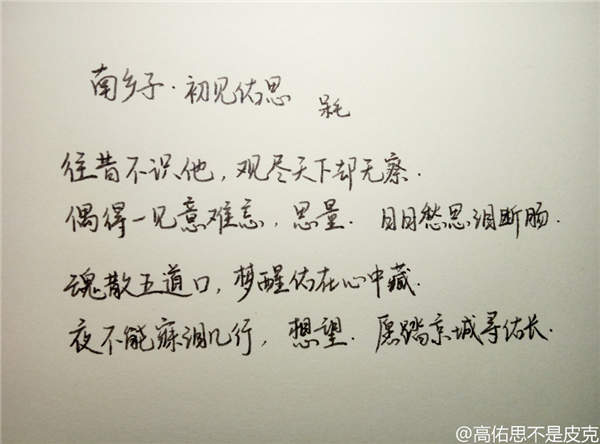 南乡子·初见佑思
呆毛
往昔不识他，观尽天下却无察.
偶得一见意难忘，思量. 日日愁思泪断肠.
魂散五道口，梦醒佑在心中藏.
夜不能寐泪几行，想望. 愿踏京城寻佑长.
@高佑思不是皮克